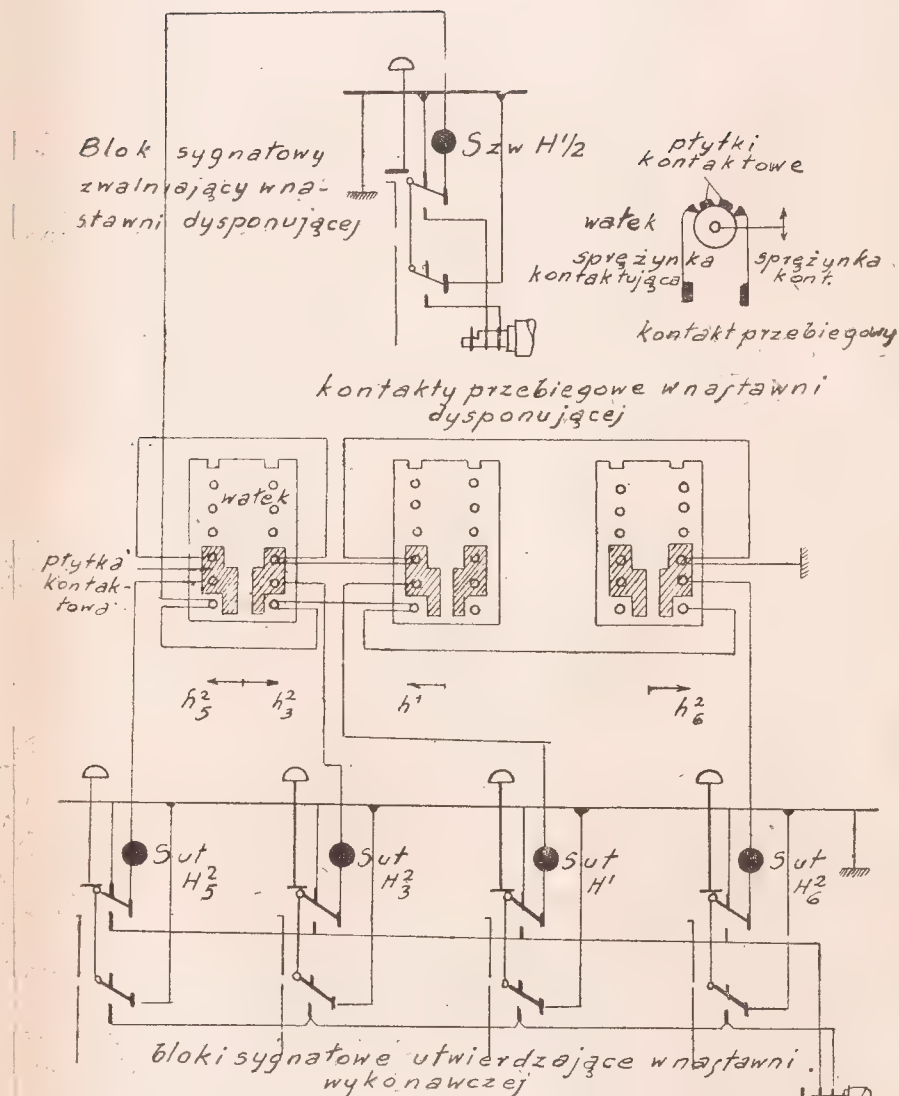 Blok sygnałowy
zwalniający wna-
stawni dysponującej
Szw H1/2
płytki
kontaktowe
wałek
sprężynka
kontaktująca
sprężynka
kont.
kontakt przebiegowy
kontakty przebiegowe wnastawni
dysponującej
wałek
płytka
kontak-
towa
h²₅
h²₃
h¹
h²₆
Sut
H²₅
Sut
H²₃
Sut
H¹
Sut
H²₆
bloki sygnałowe utwierdzające wnastawni
wykonawczej